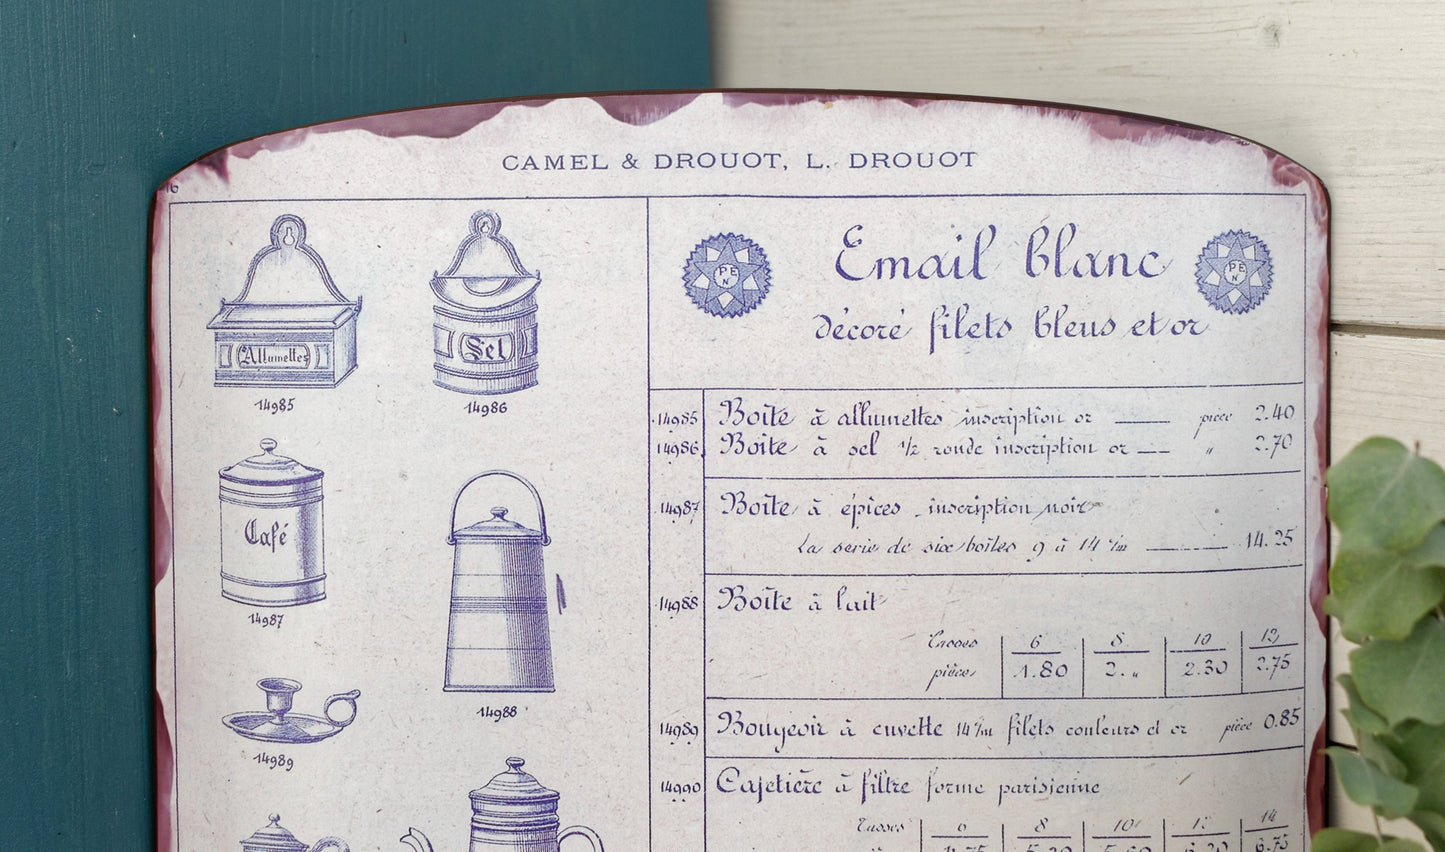 CAMEL & DROUOT, L. DROUOT
16
Allumettes
14985
Sel
14986
Café
14987
14988
14989
P E N
Email blanc
P E N
décoré filets bleus et or
14985 Boîte à allumettes inscription or pièce 2.40
14986 Boîte à sel ½ ronde inscription or " 2.70
14987 Boîte à épices inscription noir
La série de six boîtes 9 à 14 c/m 14.25
14988 Boîte à lait
Tasses 6 8 10 12
pièce 1.80 2. " 2.30 2.75
14989 Bougeoir à cuvette 14 c/m filets couleurs et or pièce 0.85
14990 Cafetière à filtre forme parisienne
Tasses 6 8 10 12 14